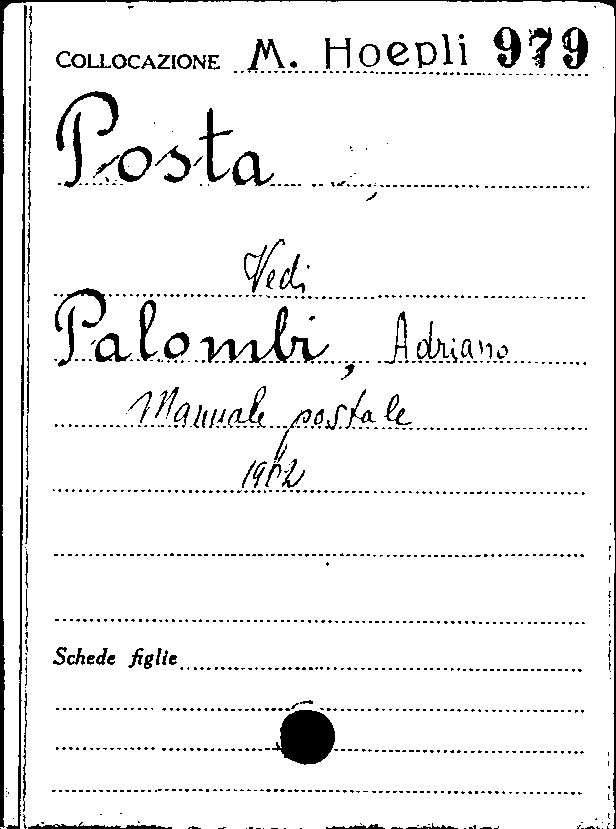 COLLOCAZIONE M. Hoepli 979
Posta
Vedi
Palombi, Adriano
Manuale postale
Schede figlie